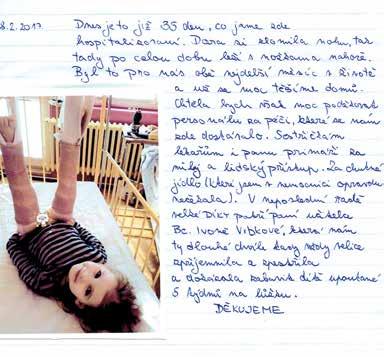 8.2.2017. Dnes je to již 35 den, co jsme zde
hospitalizovaní. Dana si zlomila nohu, tak
tady po celou dobu leží s nožkama nahoře.
Byl to pro nás obě nejdelší měsíc v životě
a už se moc těšíme domů.
Chtěla bych však moc poděkovat
personálu za péči, které se nám
zde dostávalo. Sestřičkám
lékařům i panu primáři za
milý a lidský přístup. Za chutné
jídlo (které jsem v nemocnici opravdu
nečekala). V neposlední řadě
velké Díky patří paní učitelce
Bc. Ivoně Vrbkové, která nám
ty dlouhé chvíle tady vždy velice
zpříjemnila a zpestřila
a dokázala zabavit dítě upoutané
5 týdnů na lůžku.
DĚKUJEME